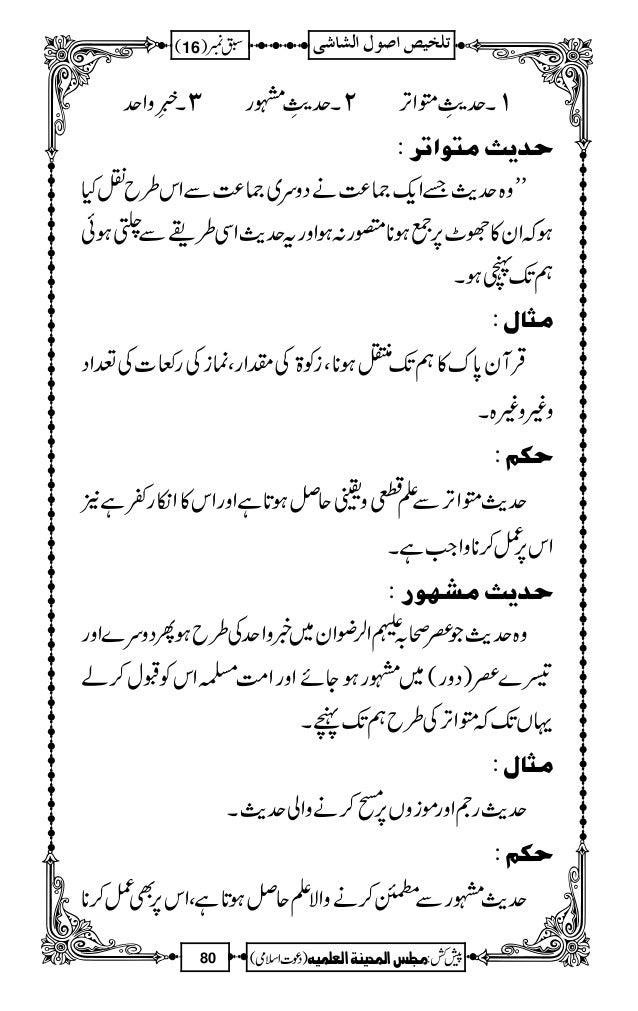 تلخیص اصول الشاشی
سبق نمبر (16)
۱۔حدیثِ متواتر ۲۔حدیثِ مشہور ۳۔خبرِ واحد
حدیث متواتر :
’’وہ حدیث جسے ایک جماعت نے دوسری جماعت سے اس طرح نقل کیا
ہو کہ ان کا جھوٹ پر جمع ہونا متصور نہ ہو اور یہ حدیث اسی طریقے سے چلتی ہوئی
ہم تک پہنچی ہو۔
مثال :
قرآن پاک کا ہم تک منتقل ہونا، زکوۃ کی مقدار، نماز کی رکعات کی تعداد
وغیر وغیرہ۔
حکم :
حدیث متواتر سے علم قطعی ویقینی حاصل ہوتا ہے اور اس کا انکار کفر ہے نیز
اس پر عمل کرنا واجب ہے۔
حدیث مشہور :
وہ حدیث جو عصر صحابہ علیہم الرضوان میں خبر واحد کی طرح ہو پھر دوسرے اور
تیسرے عصر (دور) میں مشہور ہو جائے اور امت مسلمہ اس کو قبول کرلے
یہاں تک کہ متواتر کی طرح ہم تک پہنچے۔
مثال :
حدیث رجم اور موزوں پر مسح کرنے والی حدیث۔
حکم :
حدیث مشہور سے مطمئن کرنے والا علم حاصل ہوتا ہے، اس پر بھی عمل کرنا
پیش کش: مجلس المدینۃ العلمیہ (دعوت اسلامی)
80